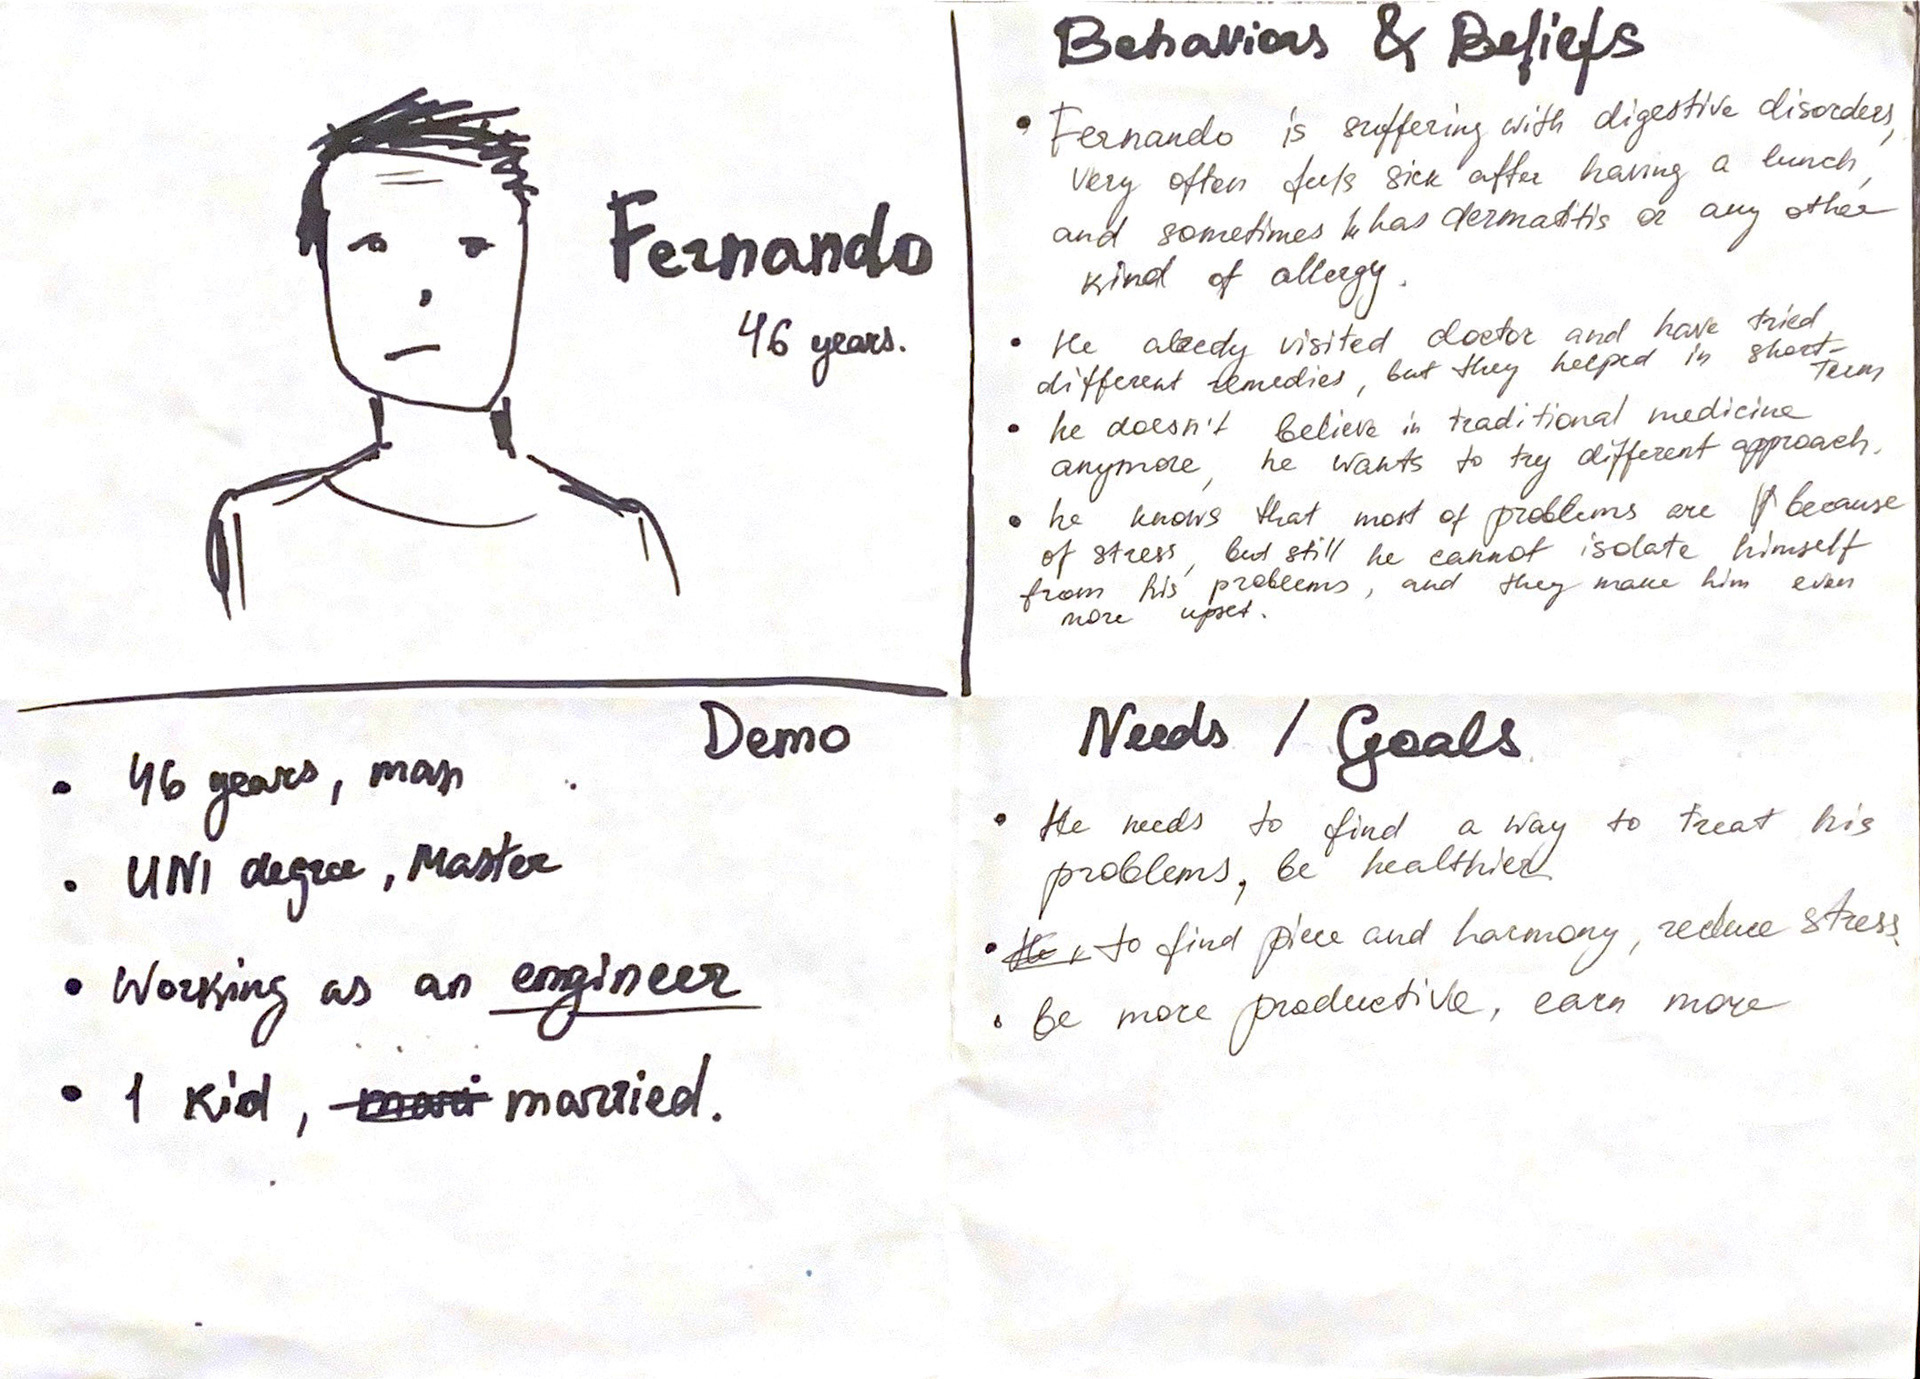 Fernando
46 years.
Behaviors & Beliefs
• Fernando is suffering with digestive disorders,
very often feels sick after having a lunch,
and sometimes has dermatitis or any other
kind of allergy.
• He alredy visited doctor and have tried
different remedies, but they helped in short-
term
• he doesn't believe in traditional medicine
anymore, he wants to try different approach.
• he knows that most of problems are because
of stress, but still he cannot isolate himself
from his problems, and they make him even
more upset.
Demo
• 46 years, man
• UNI degree, Master
• Working as an engineer
• 1 kid, married.
Needs / Goals
• He needs to find a way to treat his
problems, be healthier
• to find piece and harmony, reduce stress
• be more productive, earn more